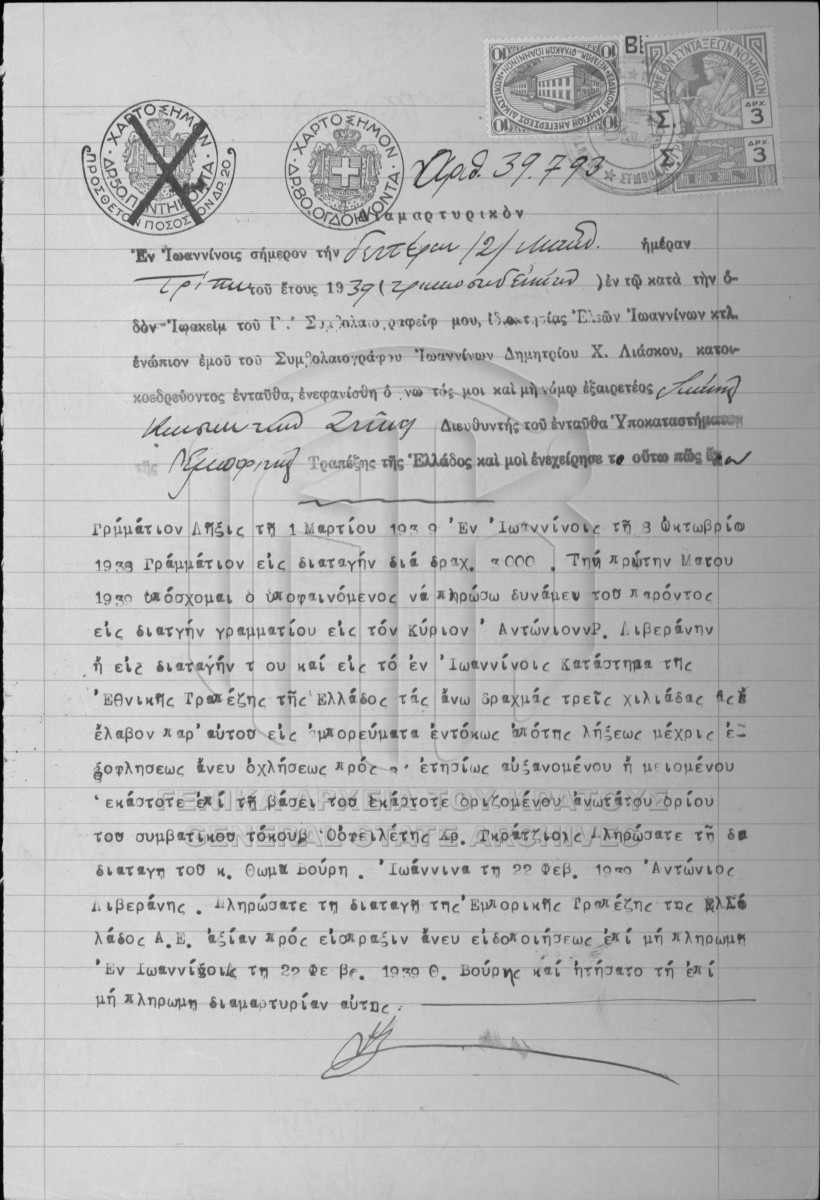 ΧΑΡΤΟΣΗΜΟΝ
ΔΡ.50.ΠΕΝΤΗΚΟΝΤΑ
ΠΡΟΣΘΕΤΟΝ ΠΟΣΟΣΤΟΝ ΔΡ.20
ΧΑΡΤΟΣΗΜΟΝ
ΔΡ.80.ΟΓΔΟΗΚΟΝΤΑ
ΤΑΜΕΙΟΝ ΣΥΝΤΑΞΕΩΝ ΝΟΜΙΚΩΝ
Σ. ΔΡΧ. 3
Σ ΔΡΧ. 3
Ἀριθ. 39.793
Διαμαρτυρικὸν
Ἐν Ἰωαννίνοις σήμερον τὴν δευτέραν /2/ ἡμέραν
Τρίτην τοῦ ἔτους 1939 ( ) ἐν τῷ κατὰ τὴν ὁ-
δὸν Ἰωακεὶμ τοῦ Γ.΄ Συμβολαιογραφείῳ μου, ἰδιοκτησίας Ἐλεῶν Ἰωαννίνων κτλ.
ἐνώπιον ἐμοῦ τοῦ Συμβολαιογράφου Ἰωαννίνων Δημητρίου Χ. Λιάσκου, κατοι-
κοεδρεύοντος ἐνταῦθα, ἐνεφανίσθη ὁ γνωστός μοι καὶ μὴ νόμῳ ἐξαιρετέος
Διευθυντής τοῦ ἐνταῦθα Ὑποκαταστήματος
τῆς Ἐμπορικῆς Τραπέζης τῆς Ἑλλάδος καὶ μοὶ ἐνεχείρησε τὸ οὕτω πῶς ἔχον
Γρμμάτιον Λῆξις τῆ 1 Μαρτίου 1939 Ἐν Ἰωαννίνοις τῆ 8 Ὀκτωβρίο
1938 Γράμμάτιον εἰς διαταγήν διά δραχ. 3000 . Τήν πρώτην Ματου
1939 ὑπόσχομαι ο ὑποφαινόμενος νά πληρώσω δυνάμει τοῦ παρόντος
εἰς διατγήν γραμματίου εἰς τόν Κύριον ἈντώνιοννΡ. Λιβεράνην
ἤ εἰς διαταγήν τ ου καί εἰς τό ἐν Ἰωαννίνοις Κατάστημα τῆς
Ἐθνικῆς Τραπέζης τῆς Ἑλλάδος τάς ἄνω δραχμάς τρεῖς χιλιάδας ἅς ἔ
ἔλαβον παρ'αὐτοῦ εἰς ἐμπορεύματα ἐντόκως ἀπότης λήξεως μέχρις ἐξ
οφλησεως ἄνευ ὀχλήσεως πρός ἐτησίως αὐξανομένου ἤ μειομένου
ἑκάστοτε ἐπί τῆ βάσει τοῦ ἑκάστοτε ὁριζομένου ἀνωτάτου ὁρίου
τοῦ συμβατικοῦ τόκουβ Ὁὀφειλέτης Δρ. Γκράτζιοις Πληρώσατε τῆ δα
διαταγη τοῦ κ. Θωμα Βούρη . Ἰωάννινα τη 22 Φεβ. 1939 Ἀντώνιος
Λιβεράνης . Πληρώσατε τη διαταγη τῆς Ἐμπορικῆς Τραπέζης της Ἑλ
λάδος Α.Ε. ἀξίαν πρός εἰσπραξιν ἄνευ εἰδοποιήσεως ἐπί μή πληρωμη
Ἐν Ἰωαννίνοις τη 22 Φεβρ. 1939 Θ. Βούρης καί ἠτήσατο τή ἐπί
μή πληρωμη διαμαρτυρίαν αὐτης .
ΓΕΝΙΚΑ ΑΡΧΕΙΑ ΤΟΥ ΚΡΑΤΟΥΣ
GENERAL STATE ARCHIVES